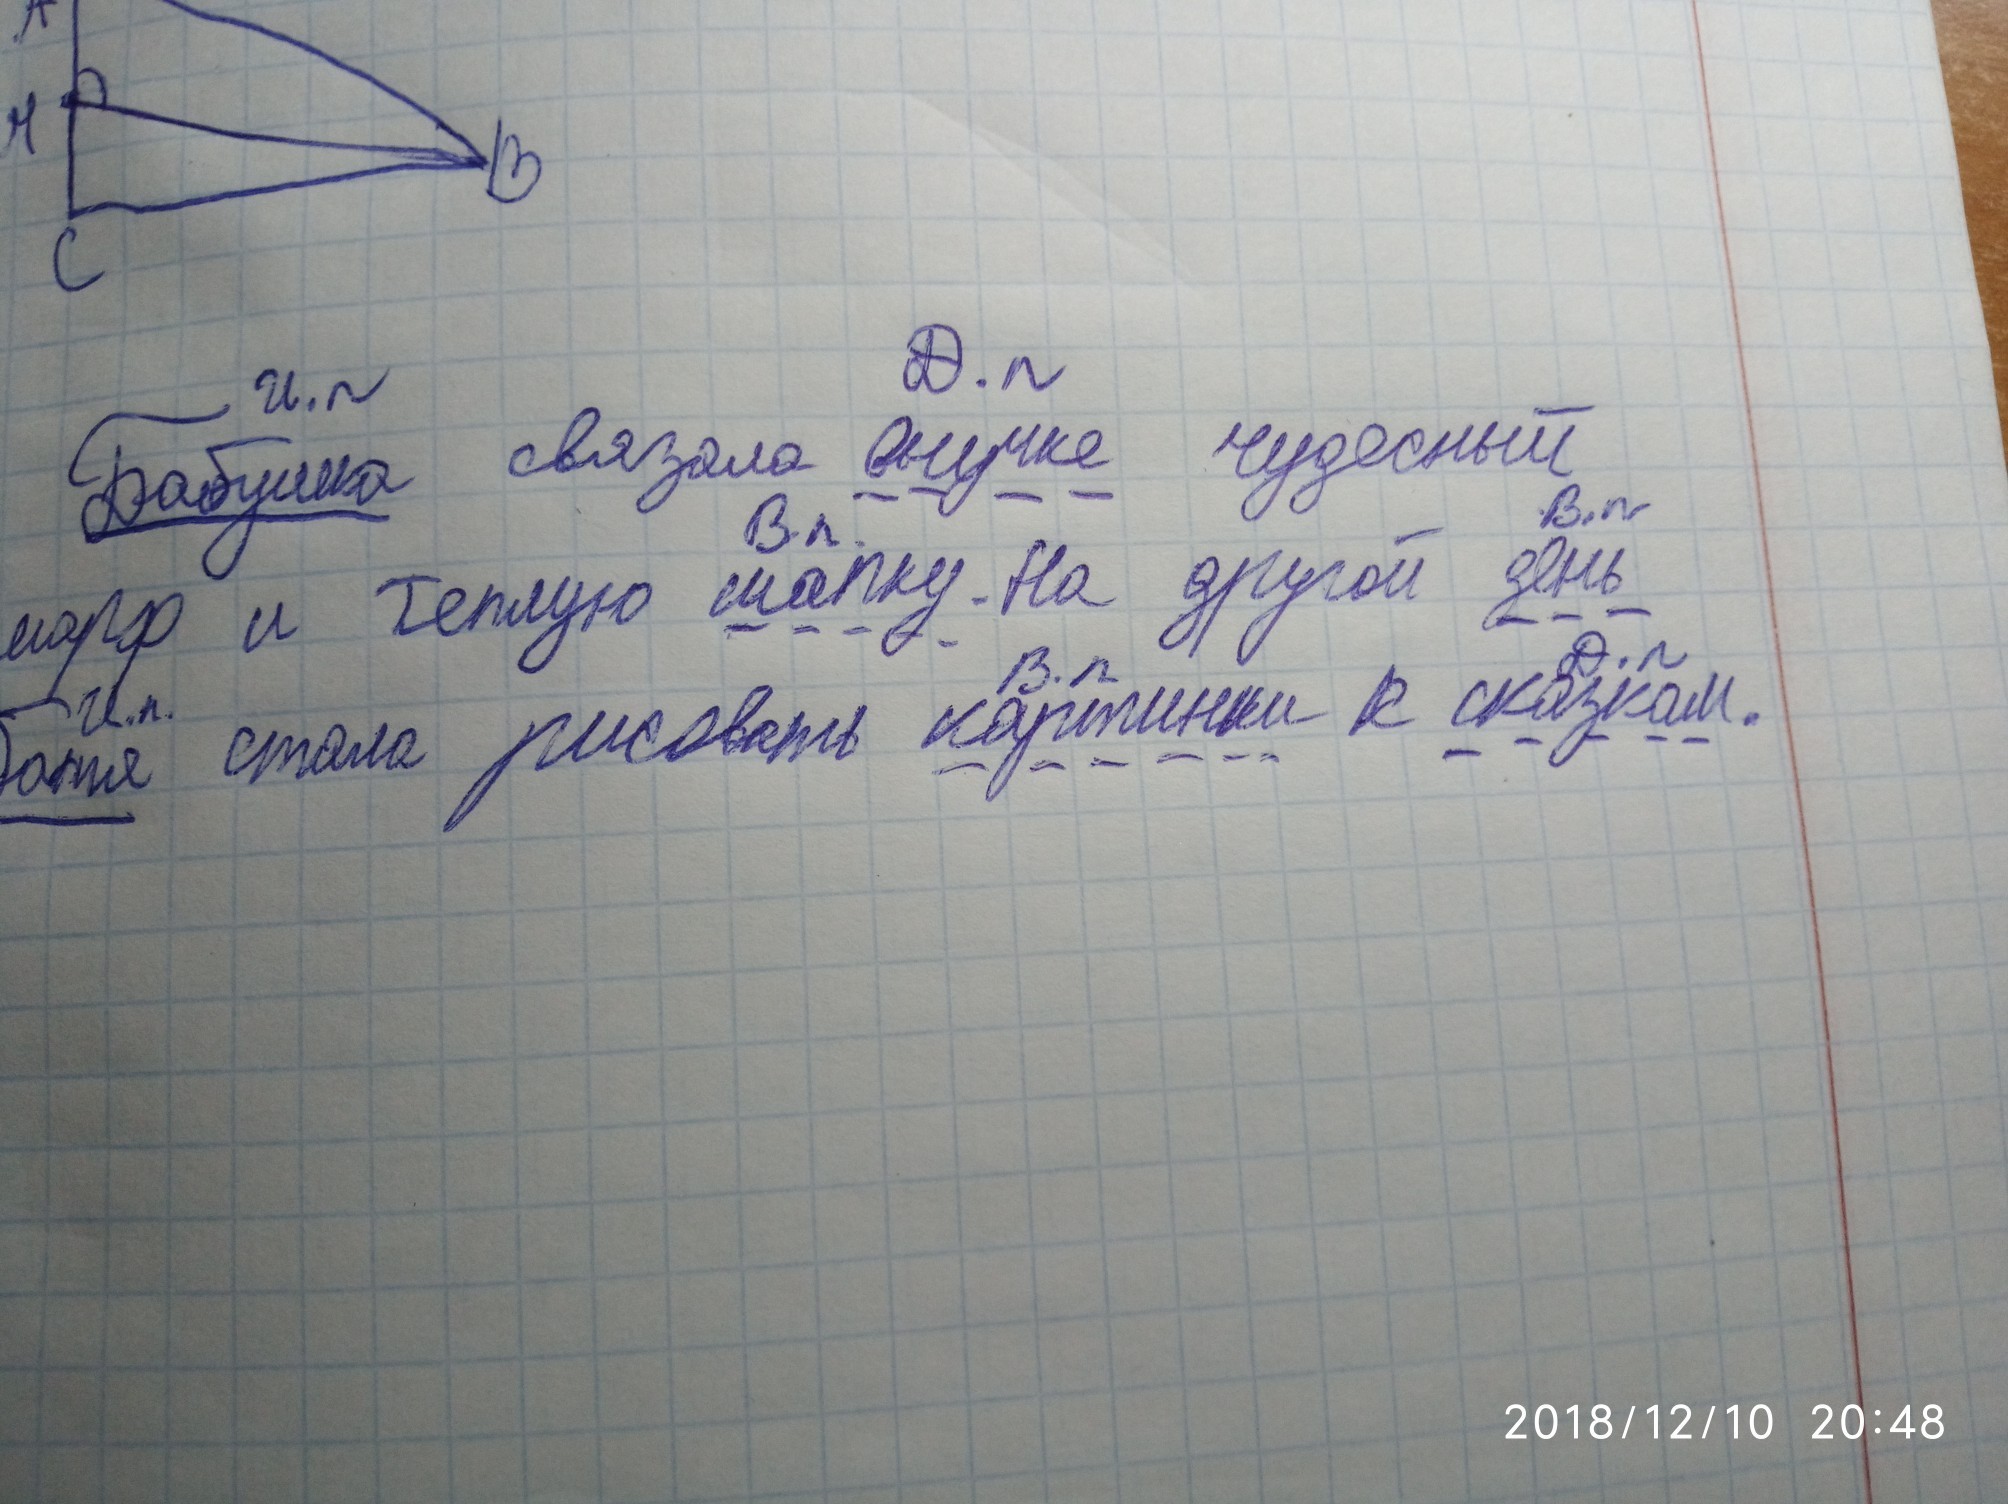 В
С
И.п Д.п
Бабушка связала внучке чудесный
В.п. В.п
шарф и теплую шапку. На другой день
И.п. В.п Д.п
стала рисовать картинки к сказкам.
2018/12/10 20:48